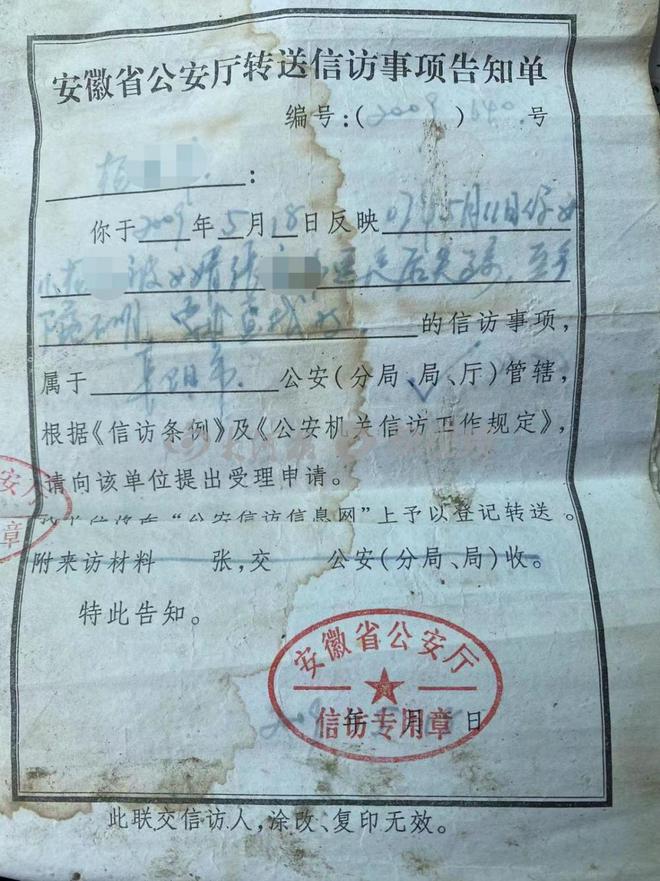 安徽省公安厅转送信访事项告知单
编号:(2009)640号
:
你于2009年5月18日反映07年5月11日你女
被女婿张 后失踪,至今
下落不明, 的信访事项,
属于阜阳市公安(分局、局、厅)管辖,
根据《信访条例》及《公安机关信访工作规定》,
请向该单位提出受理申请。
“公安信访信息网”上予以登记转送。
附来访材料 张,交 公安(分局、局)收。
特此告知。
安徽省公安厅
信访专用章
2009年5月18日
此联交信访人,涂改、复印无效。